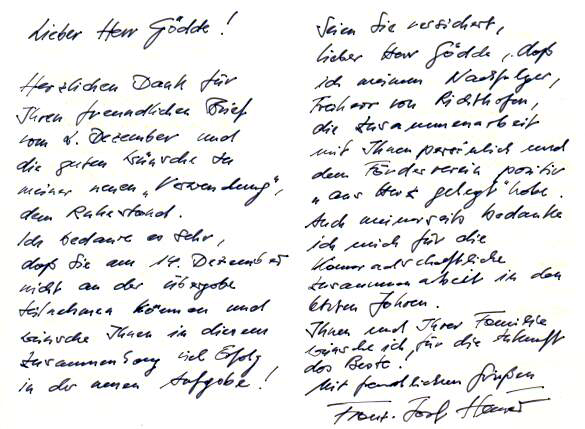 Lieber Herr Gödde!
Herzlichen Dank für
Ihren freundlichen Brief
vom 2. Dezember und
die guten Wünsche zu
meiner neuen „Verwendung",
dem Ruhestand.
Ich bedaure es sehr,
daß Sie am 14. Dezember
nicht an der Übergabe
teilnehmen können und
wünsche Ihnen in diesem
Zusammenhang viel Erfolg
in der neuen Aufgabe!
Seien Sie versichert,
lieber Herr Gödde, daß
ich meinem Nachfolger,
Freiherr von Richthofen,
die Zusammenarbeit
mit Ihnen persönlich und
dem Förderverein positiv
„ans Herz gelegt" habe.
Auch meinerseits bedanke
ich mich für die
kameradschaftliche
Zusammenarbeit in den
letzten Jahren.
Ihnen und Ihrer Familie
wünsche ich für die Zukunft
das Beste!
Mit freundlichen Grüßen
Franz-Josef